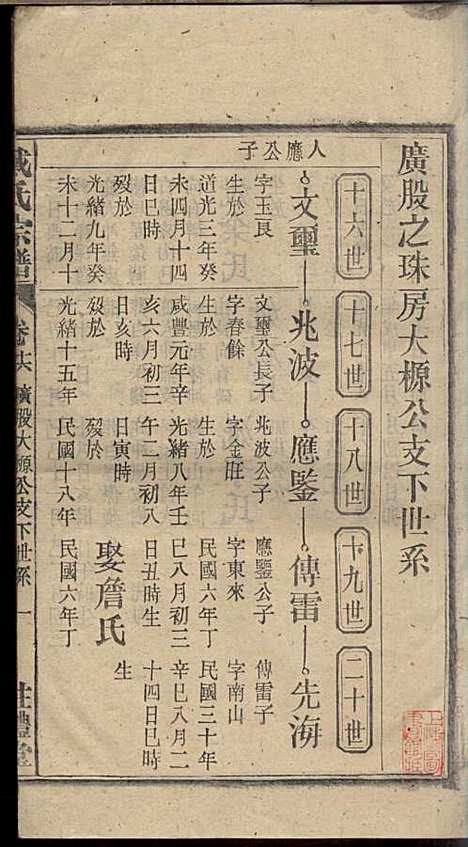 廣股之珠房大榞公支下世系
十六世
十七世
十八世
十九世
二十世
人應公子
文璽
兆波
應鑒
傳雷
先海
字玉良
生於
道光三年癸
未四月十四
日巳時
歿於
光緒九年癸
未十二月十
文璽公長子
字春餘
咸豐元年辛
亥六月初三
日亥時
歿於
光緒十五年
兆波公子
字金旺
生於
光緒八年壬
午二月初八
日寅時
歿於
民國十八年
應鑒公子
字東來
民國六年丁
巳八月初三
日丑時生
娶詹氏
民國六年丁
傳雷子
字南山
民國三十年
辛巳八月二
十四日巳時
生
戴氏宗譜
卷六
廣股大榞公支下世系
一
注禮堂